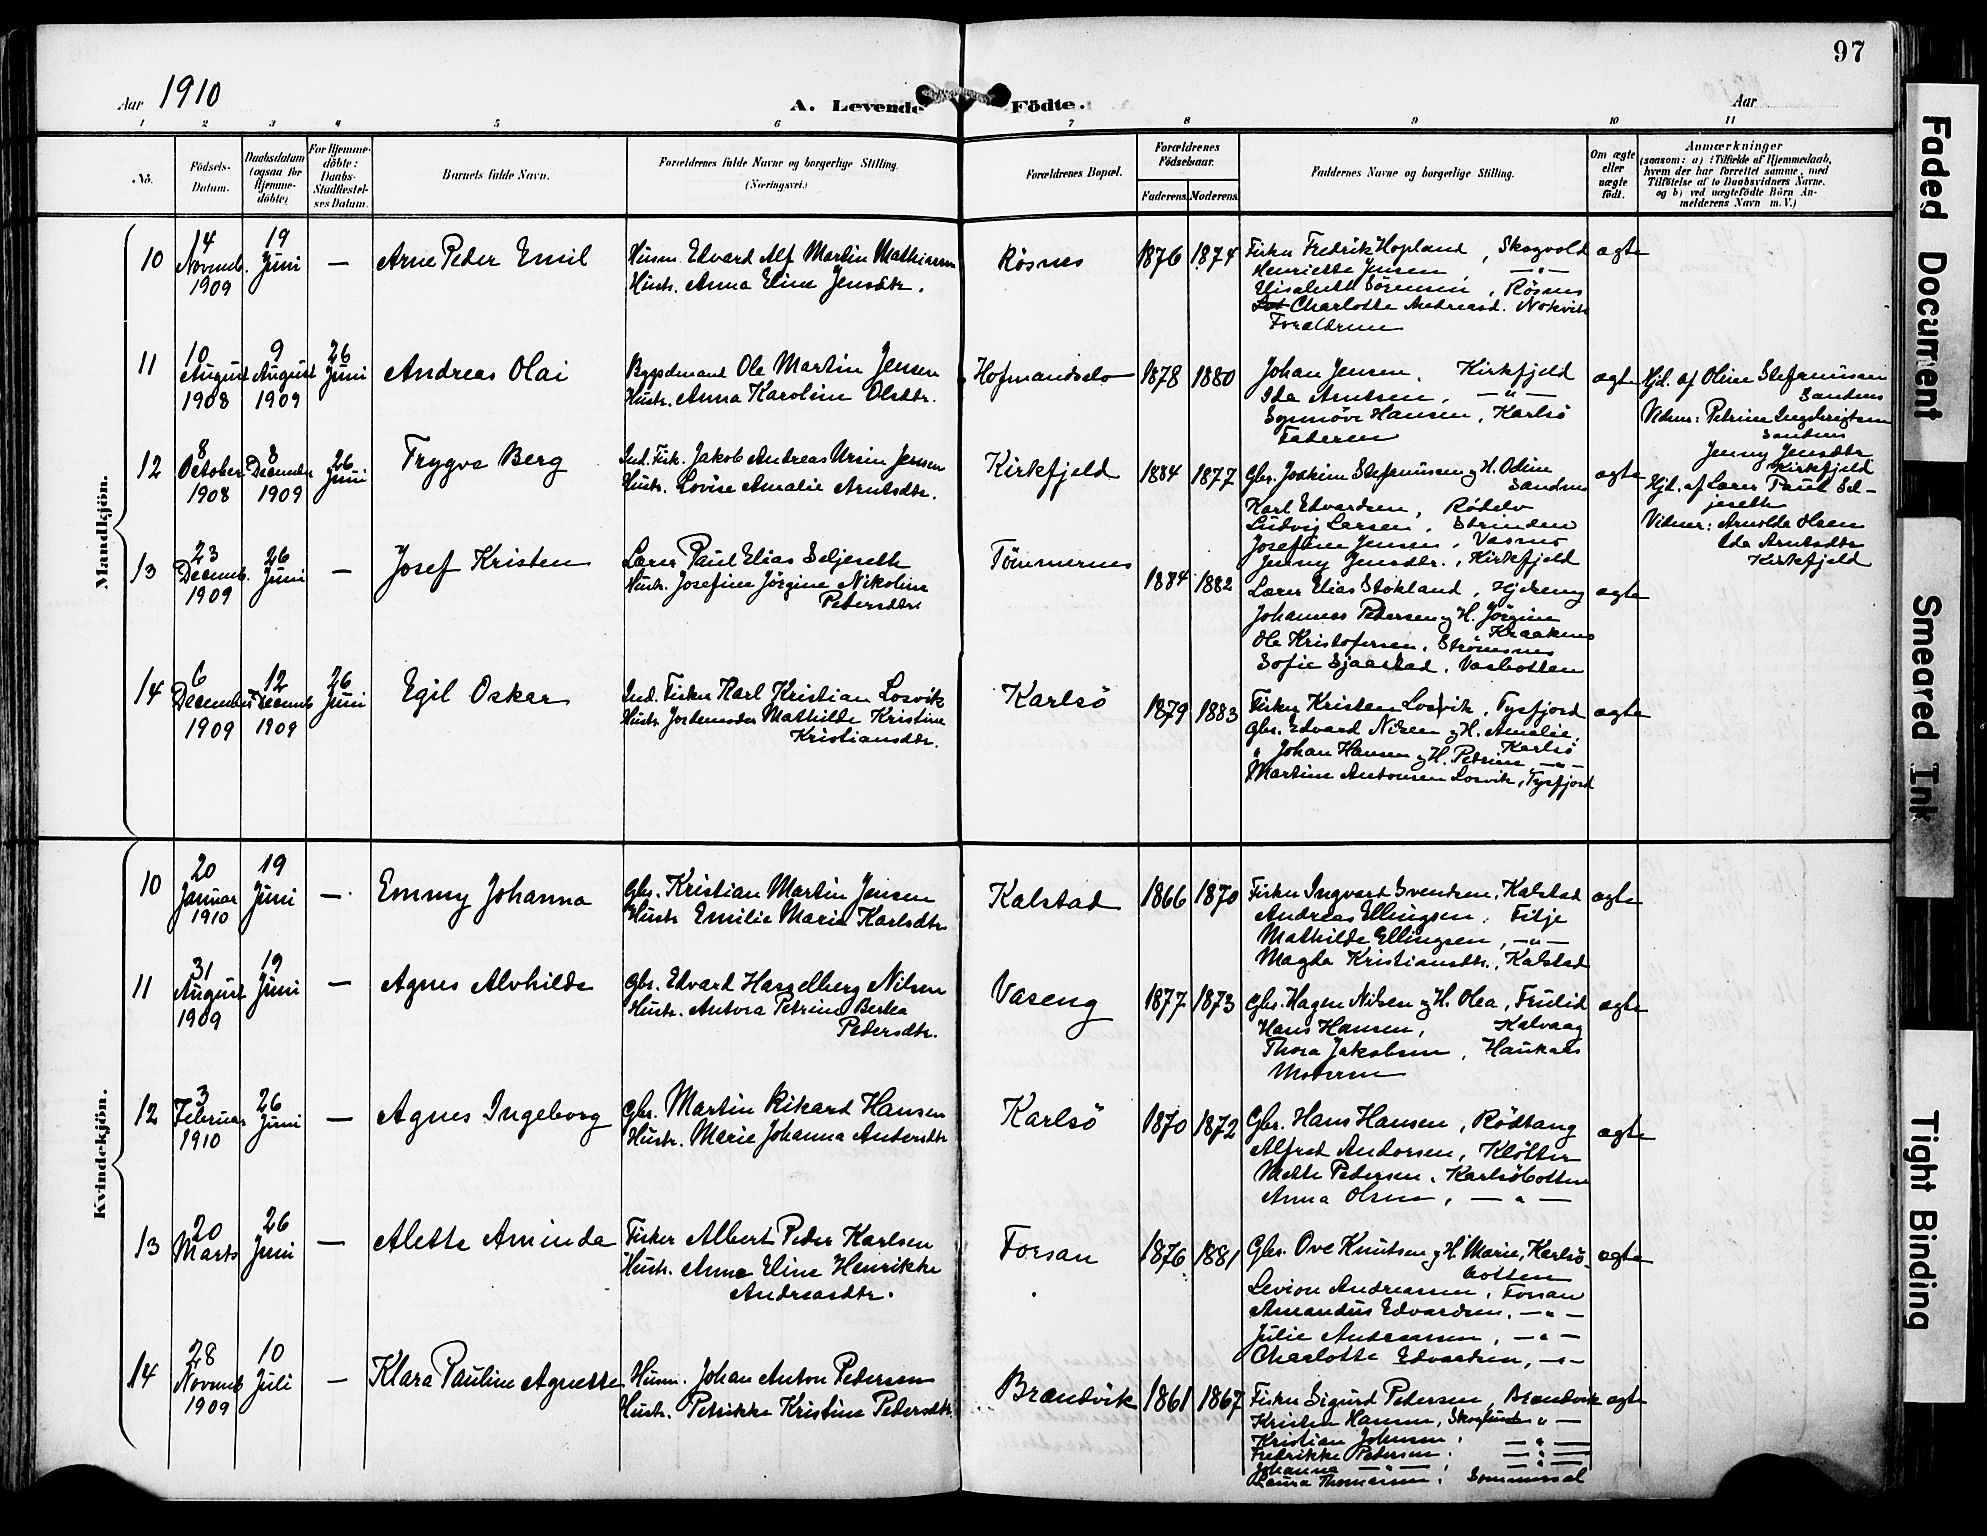 97
Aar 1910
A. Levende Födte.
Aar
1 2 3 4 5 6 7 8 9 10 11
No.
Födsels-Datum.
Daabsdatum (ogsaa for Hjemme-döbte)
For Hjemme-döbte: Daabs-Stadfæstel-ses Datum.
Barnets fulde Navn.
Forældrenes fulde Navne og borgerlige Stilling. (Næringsvei.)
Forældrenes Bopæl.
Forældrenes Födselsaar.
Faderens. Moderens.
Faddernes Navne og borgerlige Stilling.
Om ægte eller uægte födt.
Anmærkninger
(saasom: a) i Tilfælde af Hjemmedaab,
hvem der har forrettet samme, med
Tilföielse af to Daabsvidners Navne,
og b) ved uægtefödte Börn An-
melderens Navn m. V.)
Mandkjön.
10
14 Novemb. 1909
19 Juni
—
Arne Peder Emil
Husm. Edvard Alf Martin Mathisen
Hustr. Anna Eline Jensdtr.
Røsnes
1876 1874
Fisker Fredrik Hopland, Skogvold
Henriette Jensen, —"—
Elisabeth Sørensen, Røsnes
Charlotte Andreasd. Nokvik
Forældrene
ægte
11
10 August 1908
9 August 1909
26 Juni
Andreas Olai
Bygselmand Ole Martin Jensen
Hustr. Anna Karoline Olsdtr.
Hofmandselv
1878 1880
Johan Jensen, Kirkfjeld
Ida Arntsen, —"—
Synnøve Hansen, Karlsö
Faderen
ægte
Hjd. af Oline Stefanussen
Sandnes
Vidner: Petrine Ingebrigtsen
Sandnes
Jenny Jensdtr
Kirkfjeld
12
8 October 1908
8 December 1909
26 Juni
Trygve Berg
Ind. Fisk. Jakob Andreas Ursin Jensen
Hustr. Lovise Amalie Arntsdtr.
Kirkfjeld
1884 1877
Gbr. Joakim Stefanussen og H. Odine
Sandnes
Karl Edvardsen, Rödelv
Ludvig Larsen, Strinden
Josefine Jensen, Vasmo
Jenny Jensdtr., Kirkfjeld
ægte
Hjd. af Lærer Paul Sel-
jeseth
Vidner: Arnolda Olsen
Ida Arntsdtr
Kirkfjeld
13
23 Decemb. 1909
26 Juni
—
Josef Kristen
Lærer Paul Elias Seljeseth
Hustr. Josefine Jörgine Nikoline
Petersdtr
Tömmernes
1884 1882
Lærer Elias Stokland, Hjereng
Johannes Pedersen og H. Jörgine
Kraakenes
Ole Kristofersen, Strömsnes
Sofie Sjaastad, Vasbotten
ægte
14
6 December 1909
12 Decemb 1909
26 Juni
Egil Oskar
Ind. Fisker Karl Kristian Losvik
Hustr. Jordemoder Mathilde Kristine
Kristiansdtr.
Karlsö
1879 1883
Fisker Kristen Losvik, Tysfjord
Gbr. Edvard Nilsen og H. Amalie,
Karlsö
" Johan Hansen og H. Petrine —"—
Martine Antonsen Losvik, Tysfjord
ægte
Kvindekjön.
10
20 Januar 1910
19 Juni
—
Emmy Johanna
Gbr. Kristian Martin Jensen
Hustr Emilie Marie Karlsdtr
Kalstad
1866 1870
Fisker Ingvart Svendsen, Kalstad
Andreas Ellingsen, Filje
Mathilde Ellingsen, —"—
Magda Kristiansdtr., Kalstad
ægte
11
31 August 1909
19 Juni
—
Agnes Alvhilde
Gbr. Edvard Hasselberg Nilsen
Hustr. Antora Petrine Bertea
Pedersdtr.
Vaseng
1877 1873
Gbr. Hagen Nilsen og H. Olea, Frulid
Hans Hansen, Kalvaag
Thora Jakobsen, Haukaas
Moderen
ægte
12
3 Februar 1910
26 Juni
—
Agnes Ingeborg
Gbr. Martin Rikard Hansen
Hustr. Marie Johanna Andersdtr
Karlsö
1870 1872
Gbr. Hans Hansen, Rödtang
Alfred Andorsen, Klötter
Mette Pedersen, Karlsöbotten
Anna Olsen, —"—
ægte
13
20 Marts
26 Juni
—
Alette Aminda
Fisker Albert Peder Karlsen
Hustr. Anna Eline Henrikke
Andreasdtr.
Forsan
1876 1881
Gbr. Ove Knutsen og H. Marie, Karlsö-
botten
Levion Andreassen, Forsan
Amandus Edvardsen, —"—
Julie Andreassen, —"—
Charlotte Edvardsen, —"—
ægte
14
28 Novemb 1909
10 Juli
—
Klara Pauline Agnette
Husm. Johan Anton Pedersen
Hustr. Petrikke Kristine Pedersdtr.
Brændvik
1861 1867
Fisker Sigurd Pedersen, Brændvik
Kristen Hansen, Skoglund "—
Kristian Johnsen, —"—
Fredrikke Pedersen, —"—
Johanna —"—, —"—
Laura Thomassen, Sommersel
ægte
Faded Document
Smeared Ink
Tight Binding